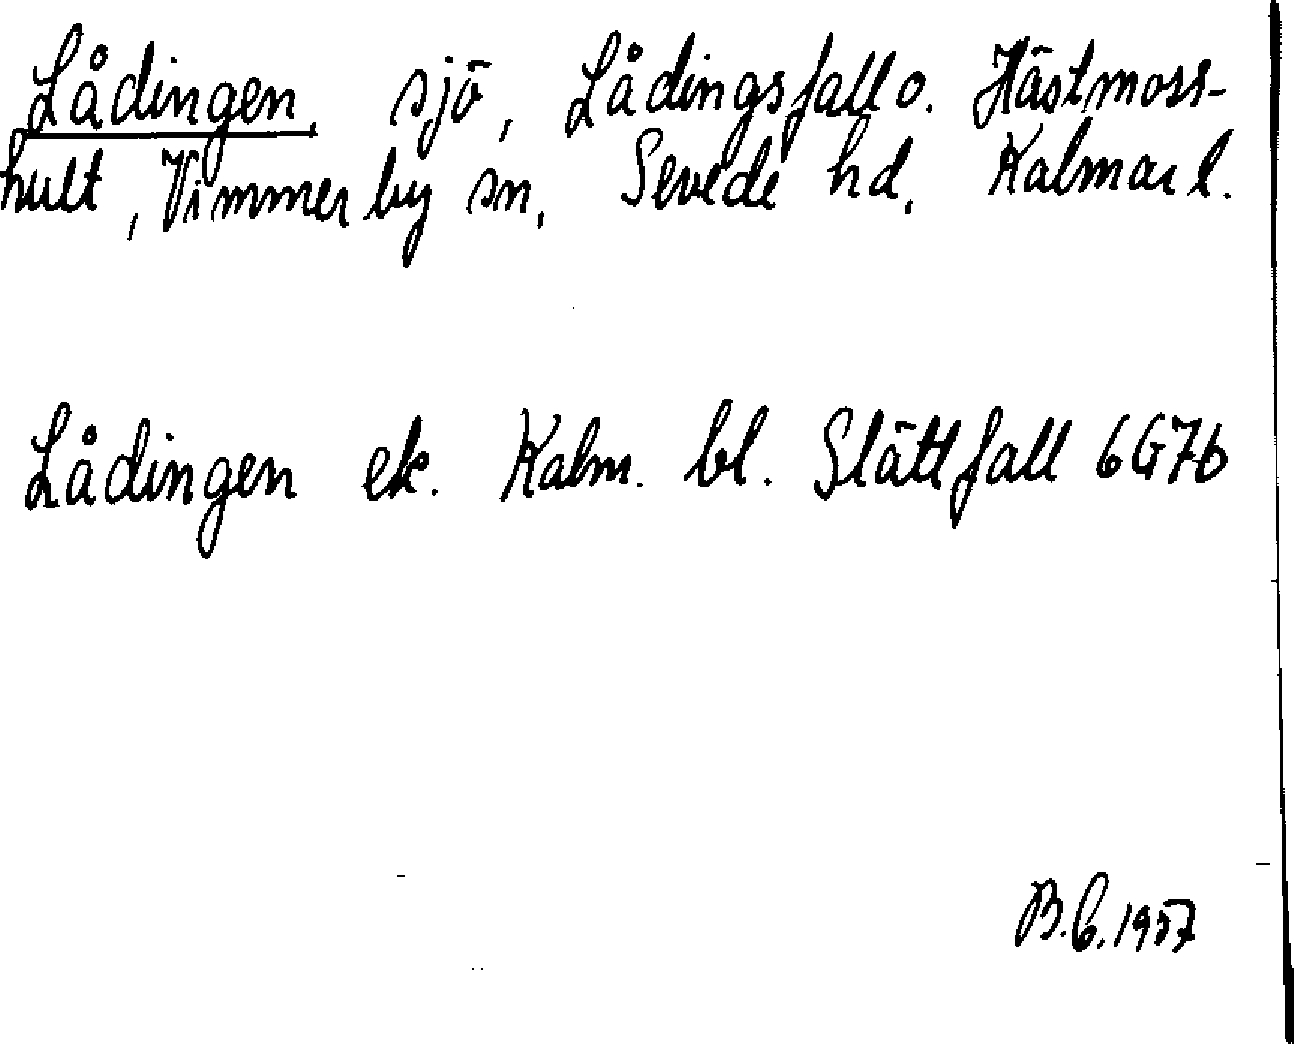 Lådingen, sjö, Lådingsfall o. Hästmoss-
hult, Vimmerby sn, Sevede hd, Kalmar l.
Lådingen ek. Kalm. bl. Slättfall 6G7b
B.C. 1957